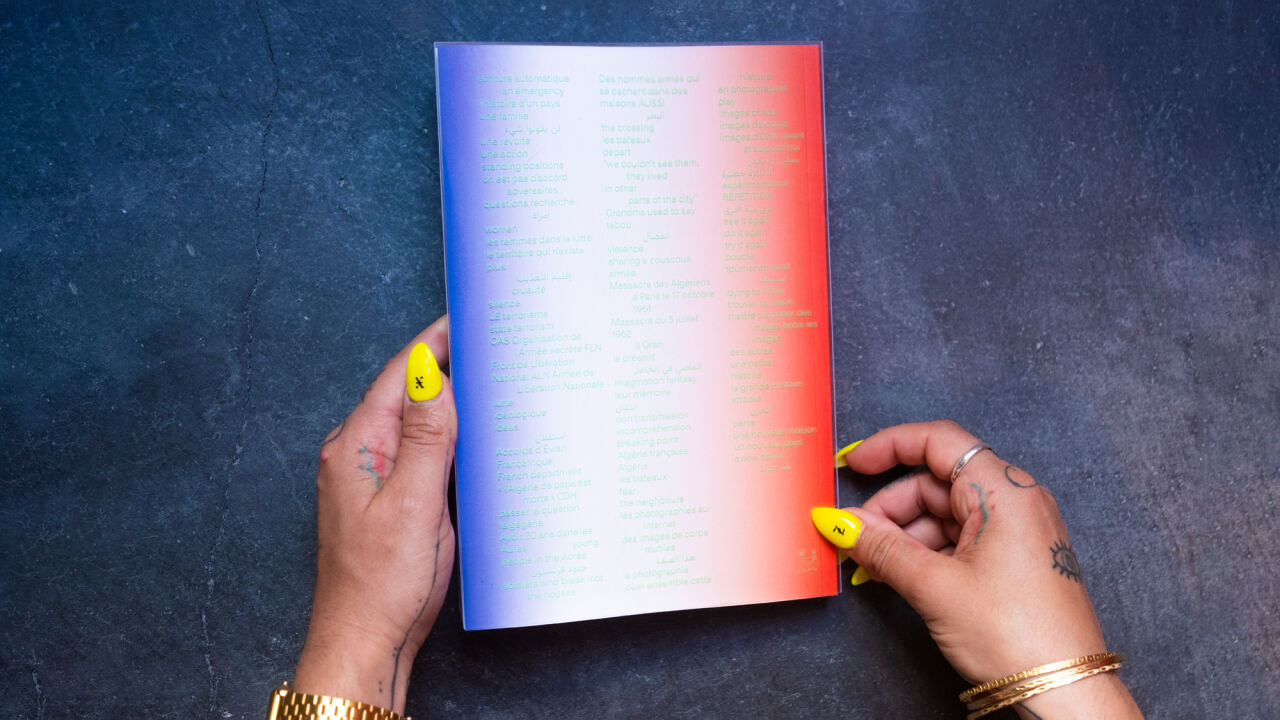 écriture automatique
an emergency
l'histoire d'un pays
une famille
لن يقولوا شيء
une révolte
une action
standing positions
on est pas d'accord
adversaires
questions recherche
امرأة
woman
les femmes dans la lutte
le territoire qui n'existe
plus
إقليم التعذيب
cruauté
silence
LE terrorisme
state terrorism
OAS Organisation de
l'Armée secrète FLN
Front de Libération
National ALN Armée de
Libération Nationale
lutte
idéologique
Accords d'Évian
Françafrique
French department
« l'Algérie de papa est
morte » CDH
passer la question
la gégène
Avoir 20 ans dans les
Aurès young
people in the Aures
جنود فرنسيون
soldiers who break into
the houses
Des hommes armés qui
se cachent dans des
maisons AUSSI
البحر
the crossing
les bateaux
départ
"we couldn't see them,
they lived
in other
parts of the city"
Grandma used to say
tabou
انفصال
violence
sharing a couscous
armée
Massacre des Algériens
à Paris le 17 octobre
1961
Massacre du 5 juillet
1962
à Oran
le présent
الماضي في الحاضر
imagination fantasy
leur mémoire
انتقال
non transmission
incompréhension
breaking point
Algérie française
Algérie
les bateaux
fear
the neighbours
les photographies sur
internet
des images de corps
mutilés
هذا الصيف
la photographie
jouer ensemble cette
histoire
en photographie
play
images of war
images de corps
images d'Oran avant
et aujourd'hui
expérimentation
REPETITION
see it again
do it again
try it again
boucle
tourner en rond
trouver sa place
mettre en scène des
images entre les
images
des autres
une petite
histoire
la grande histoire
attacks
perte
une nouvelle maison
un nouveau pays
a new home